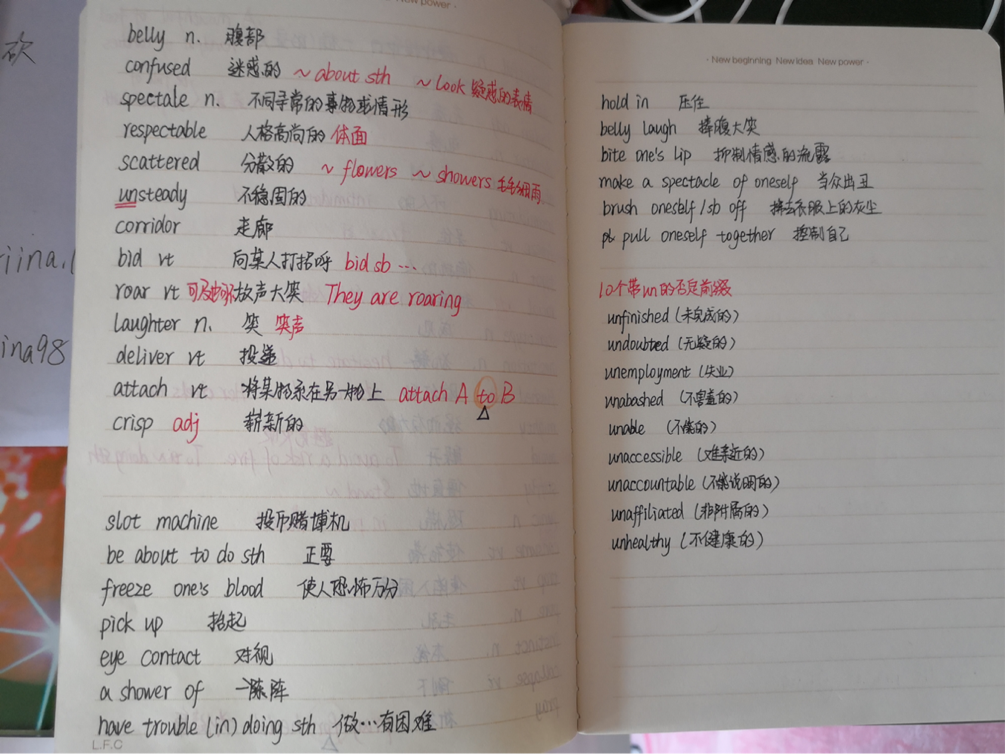 砍
New power ·
belly n. 腹部
confused 迷惑的 ~about sth ~look 疑惑的表情
spectale n. 不同寻常的事物或情形
respectable 人格高尚的 体面
scattered 分散的 ~ flowers ~ showers 毛毛细雨
unsteady 不稳固的
corridor 走廊
bid vt 向某人打招呼 bid sb ...
roar vt 放声大笑 They are roaring
laughter n. 笑 笑声
deliver vt 投递
attach vt 将某物系在另一物上 attach A to B
crisp adj 崭新的
slot machine 投币赌博机
be about to do sth 正要
freeze one's blood 使人恐怖万分
pick up 抬起
eye contact 对视
a shower of 一陈阵
have trouble (in) doing sth 做…有困难
L.F.C
· New beginning New idea New power ·
hold in 压住
belly laugh 捧腹大笑
bite one's lip 抑制情感的流露
make a spectacle of oneself 当众出丑
brush oneself / sb off 掸去衣服上的灰尘
pull oneself together 控制自己
10个带un的否定前缀
unfinished (未完成的)
undoubted (无疑的)
unemployment (失业)
unabashed (不害羞的)
unable (不能的)
unaccessible (难亲近的)
unaccountable (不能说明的)
unaffiliated (非附属的)
unhealthy (不健康的)